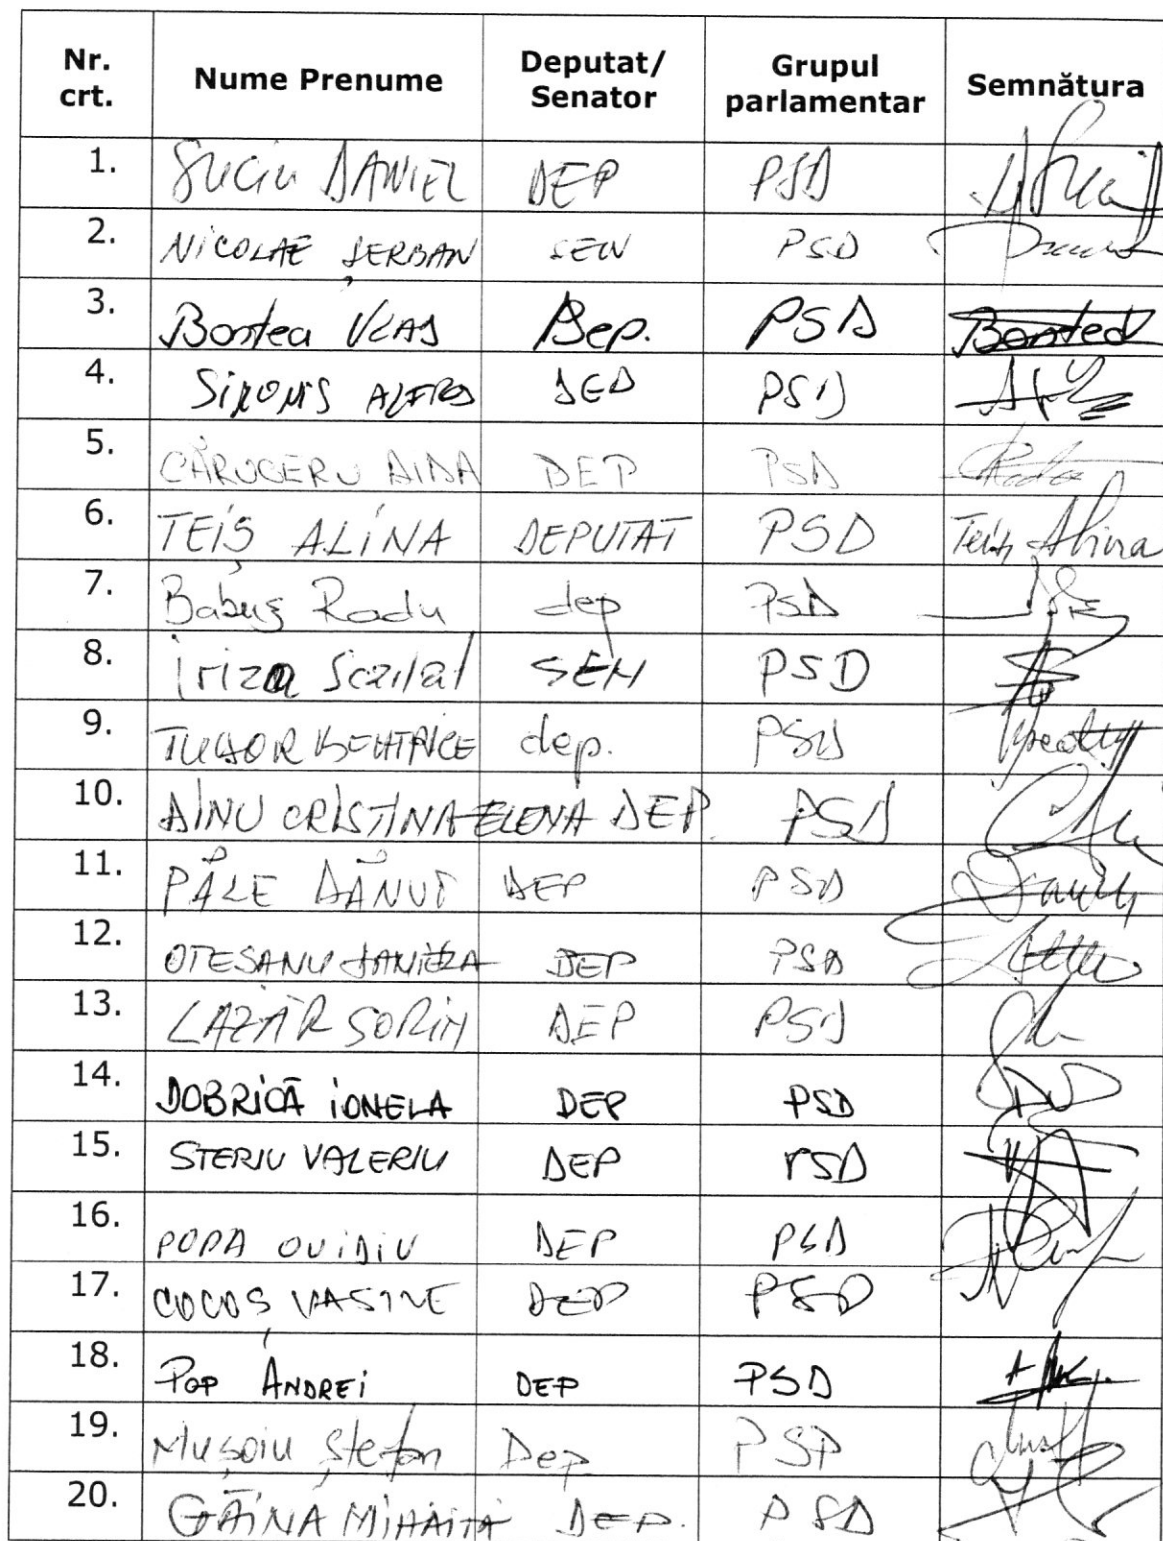 Nr. crt. Nume Prenume Deputat/ Senator Grupul parlamentar Semnătura
1. SUCIU DANIEL DEP PSD
2. NICOLAE ȘERBAN SEN PSD
3. Bontea VLAD Dep. PSD Bontea
4. SIMONIS ALFRED DEP PSD
5. CĂRUCERU AIDA DEP PSD
6. TEIȘ ALINA DEPUTAT PSD Teiș Alina
7. Babuș Radu dep PSD
8. Iriza Scarlat SEN PSD
9. TUDOR BEATRICE dep. PSD
10. DINU CRISTINA-ELENA DEP. PSD
11. PÂLE DĂNUȚ DEP PSD
12. OTESANU DANIELA DEP PSD
13. LAZĂR SORIN DEP PSD
14. DOBRICĂ IONELA DEP PSD
15. STERIU VALERIU DEP PSD
16. POPA OVIDIU DEP PSD
17. COCOȘ VASILE DEP PSD
18. POP ANDREI DEP PSD
19. Mușoiu Ștefan Dep PSD
20. GĂINĂ MIHĂIȚĂ DEP. PSD